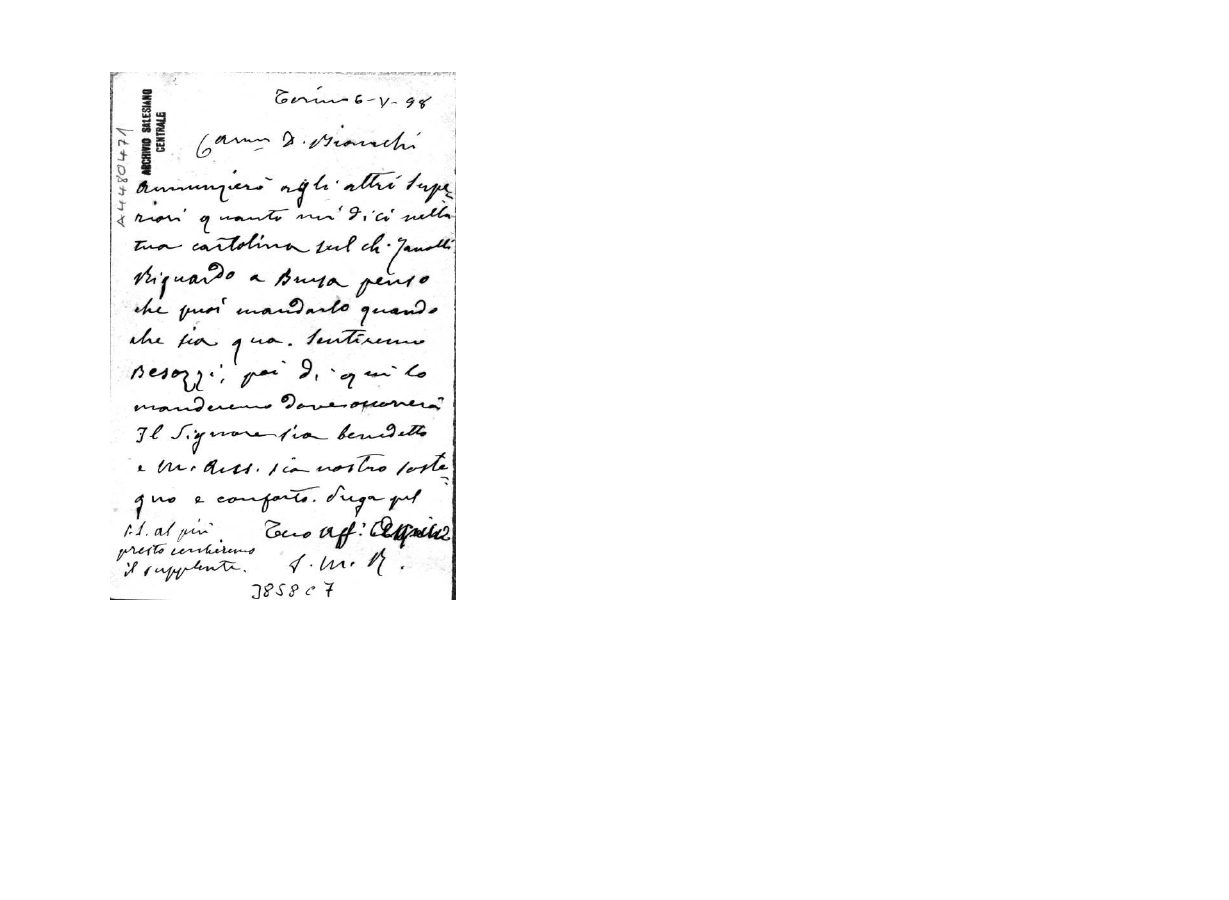 ARCHIVIO SALESIANO
CENTRALE
A4480471
Torino 6-V-98
Car.mo D. Bianchi
Annunzierò agli altri Supe-
riori quanto mi dici nella
tua cartolina sul ch. Zanotti
Riguardo a Brusa penso
che puoi mandarlo quando
che sia qua. Sentiremo
Besozzi, poi di qui lo
manderemo dove occorrerà
Il Signore sia benedetto
e M. Auss. sia nostro soste-
gno e conforto. Prega pel
Tuo aff.
S. M. R.
P.S. al più
presto cercheremo
il supplente.
3858 C 7